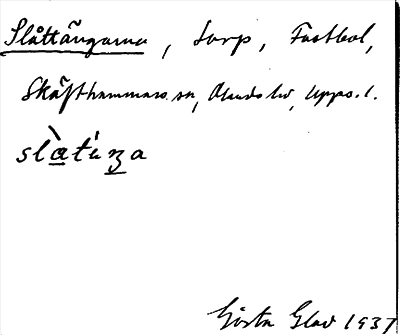 Slåttängarna, torp, Fastbol,
Skäfthammars sn, Olands hd, Upps. l.
slàt́ńza
Gösta Glad 1937